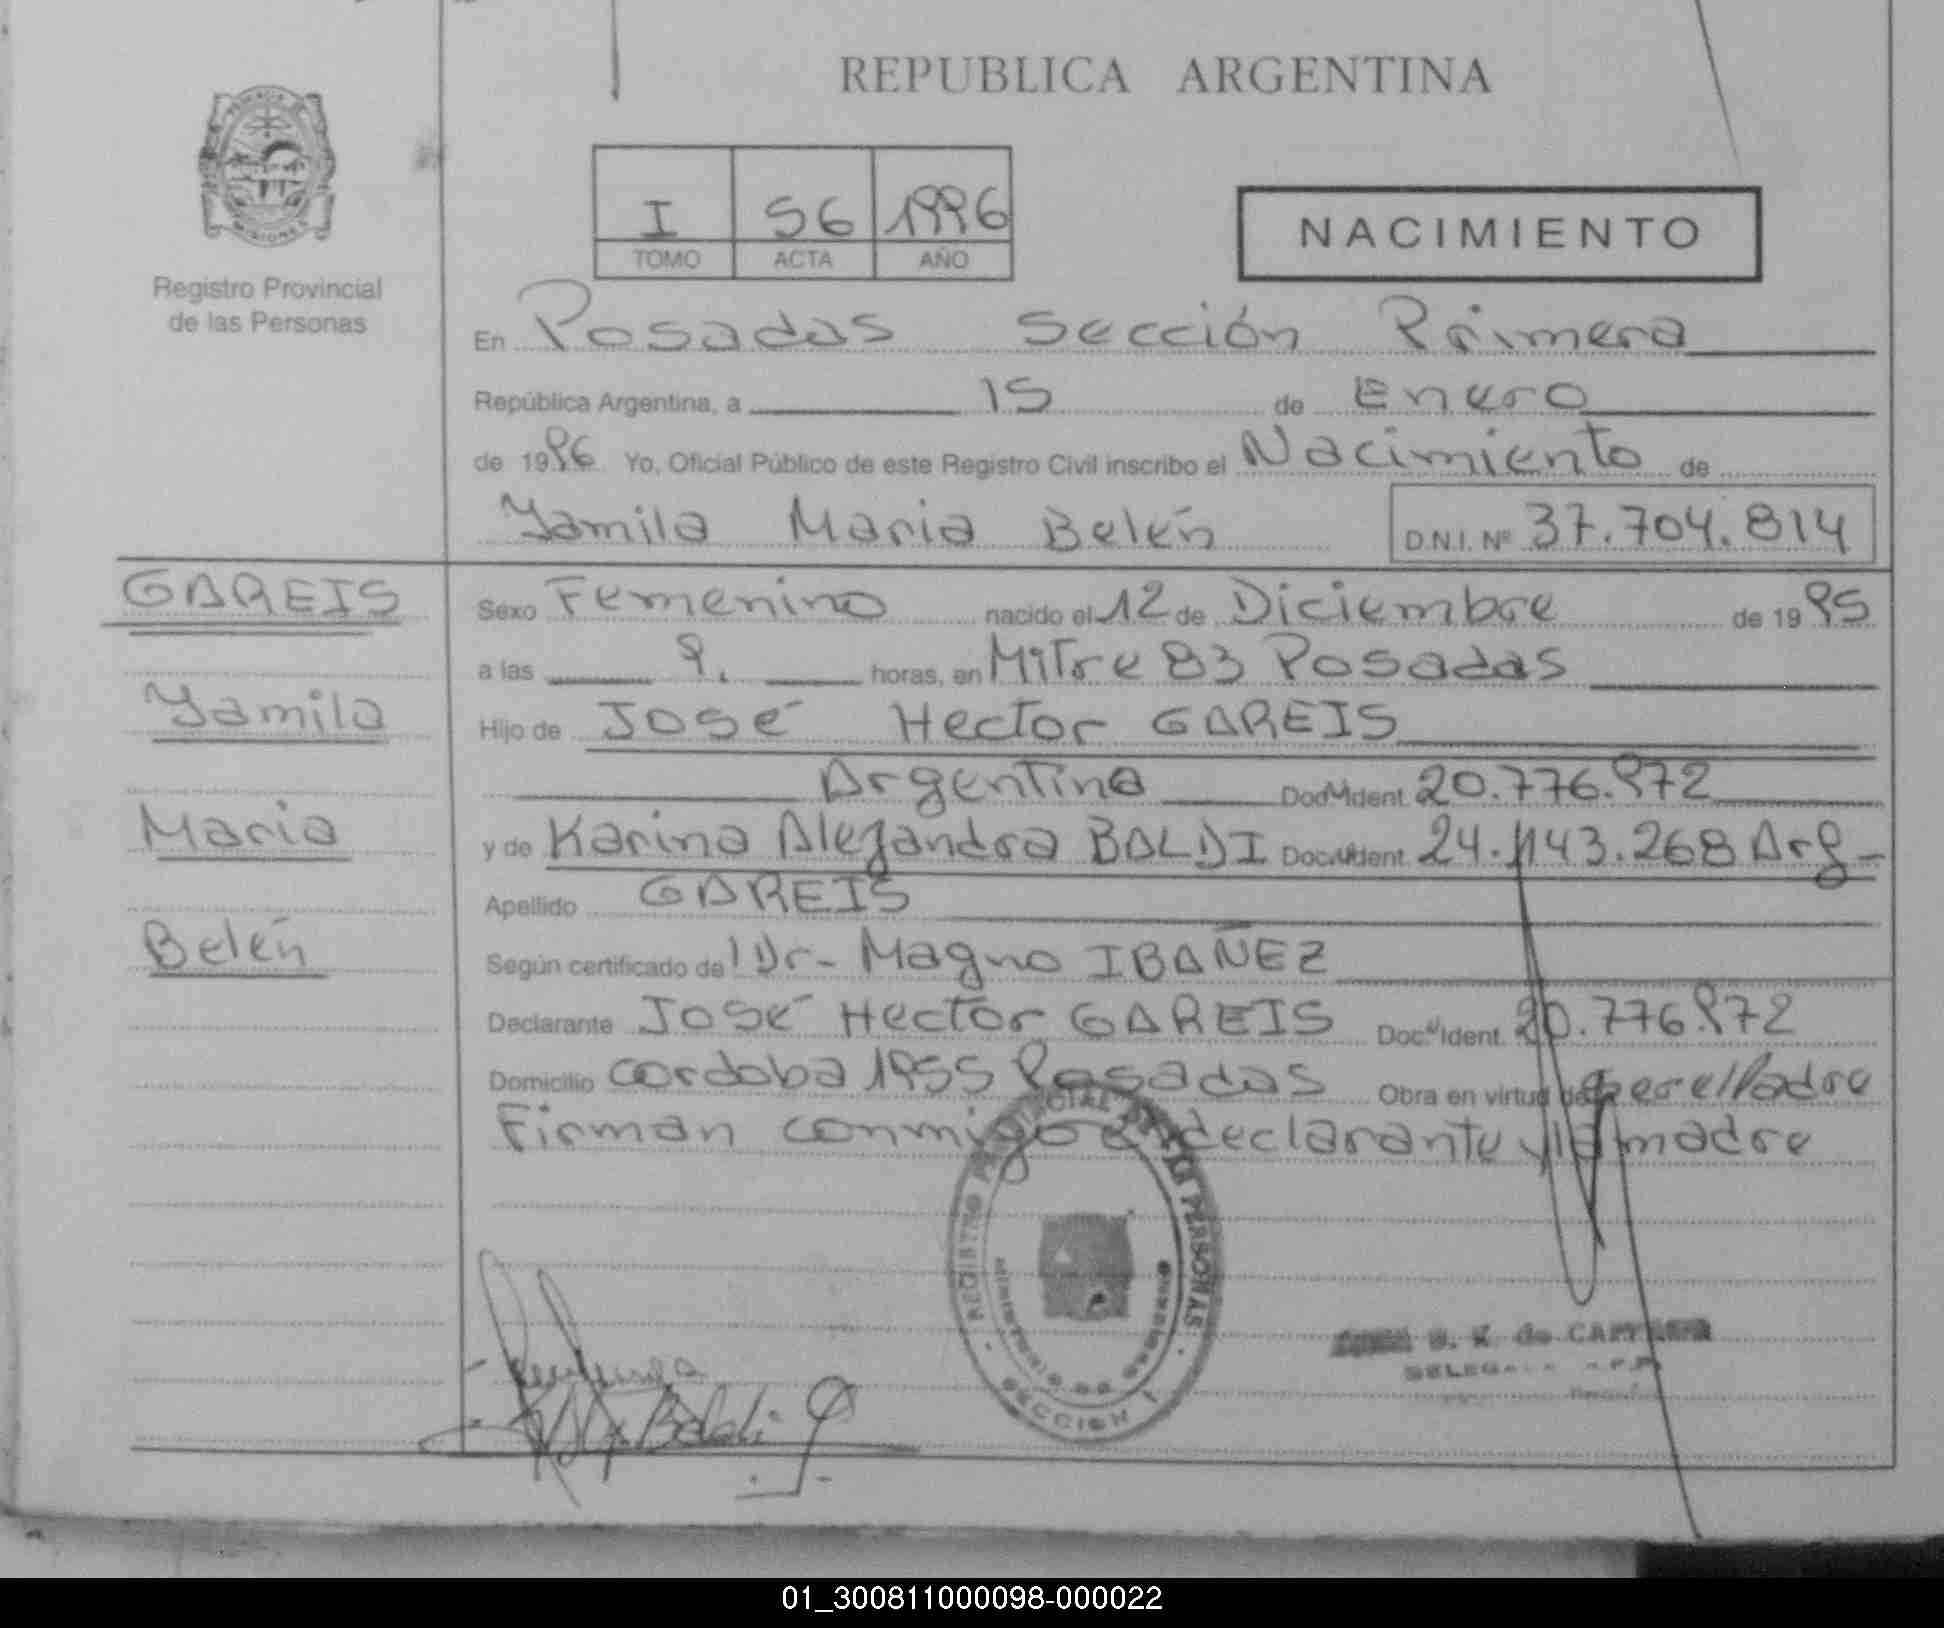 REPUBLICA ARGENTINA
I 56 1996
TOMO ACTA AÑO
NACIMIENTO
MISIONES
Registro Provincial
de las Personas
En Posadas Sección Primera
República Argentina, a 15 de Enero
de 1996 Yo, Oficial Público de este Registro Civil inscribo el Nacimiento de
Yamila Maria Belén D.N.I. Nº 37.704.814
GAREIS
Yamila
Maria
Belén
Sexo Femenino nacido el 12 de Diciembre de 1995
a las 9. horas, en Mitre 83 Posadas
Hijo de José Hector GAREIS
Argentina Doc. Ident. 20.776.972
y de Karina Alejandra BALDI Doc. Ident. 24.143.268 Arg
Apellido GAREIS
Según certificado de Dr. Magno IBAÑEZ
Declarante José Hector GAREIS Doc. Ident. 20.776.972
Domicilio cordoba 1955 Posadas Obra en virtud de ser el Padre
Firman conmigo el declarante y la madre
REGISTRO PROVINCIAL DE LAS PERSONAS
SECCION 1
MINISTERIO DE GOBIERNO
de
Baldi
01_300811000098-000022